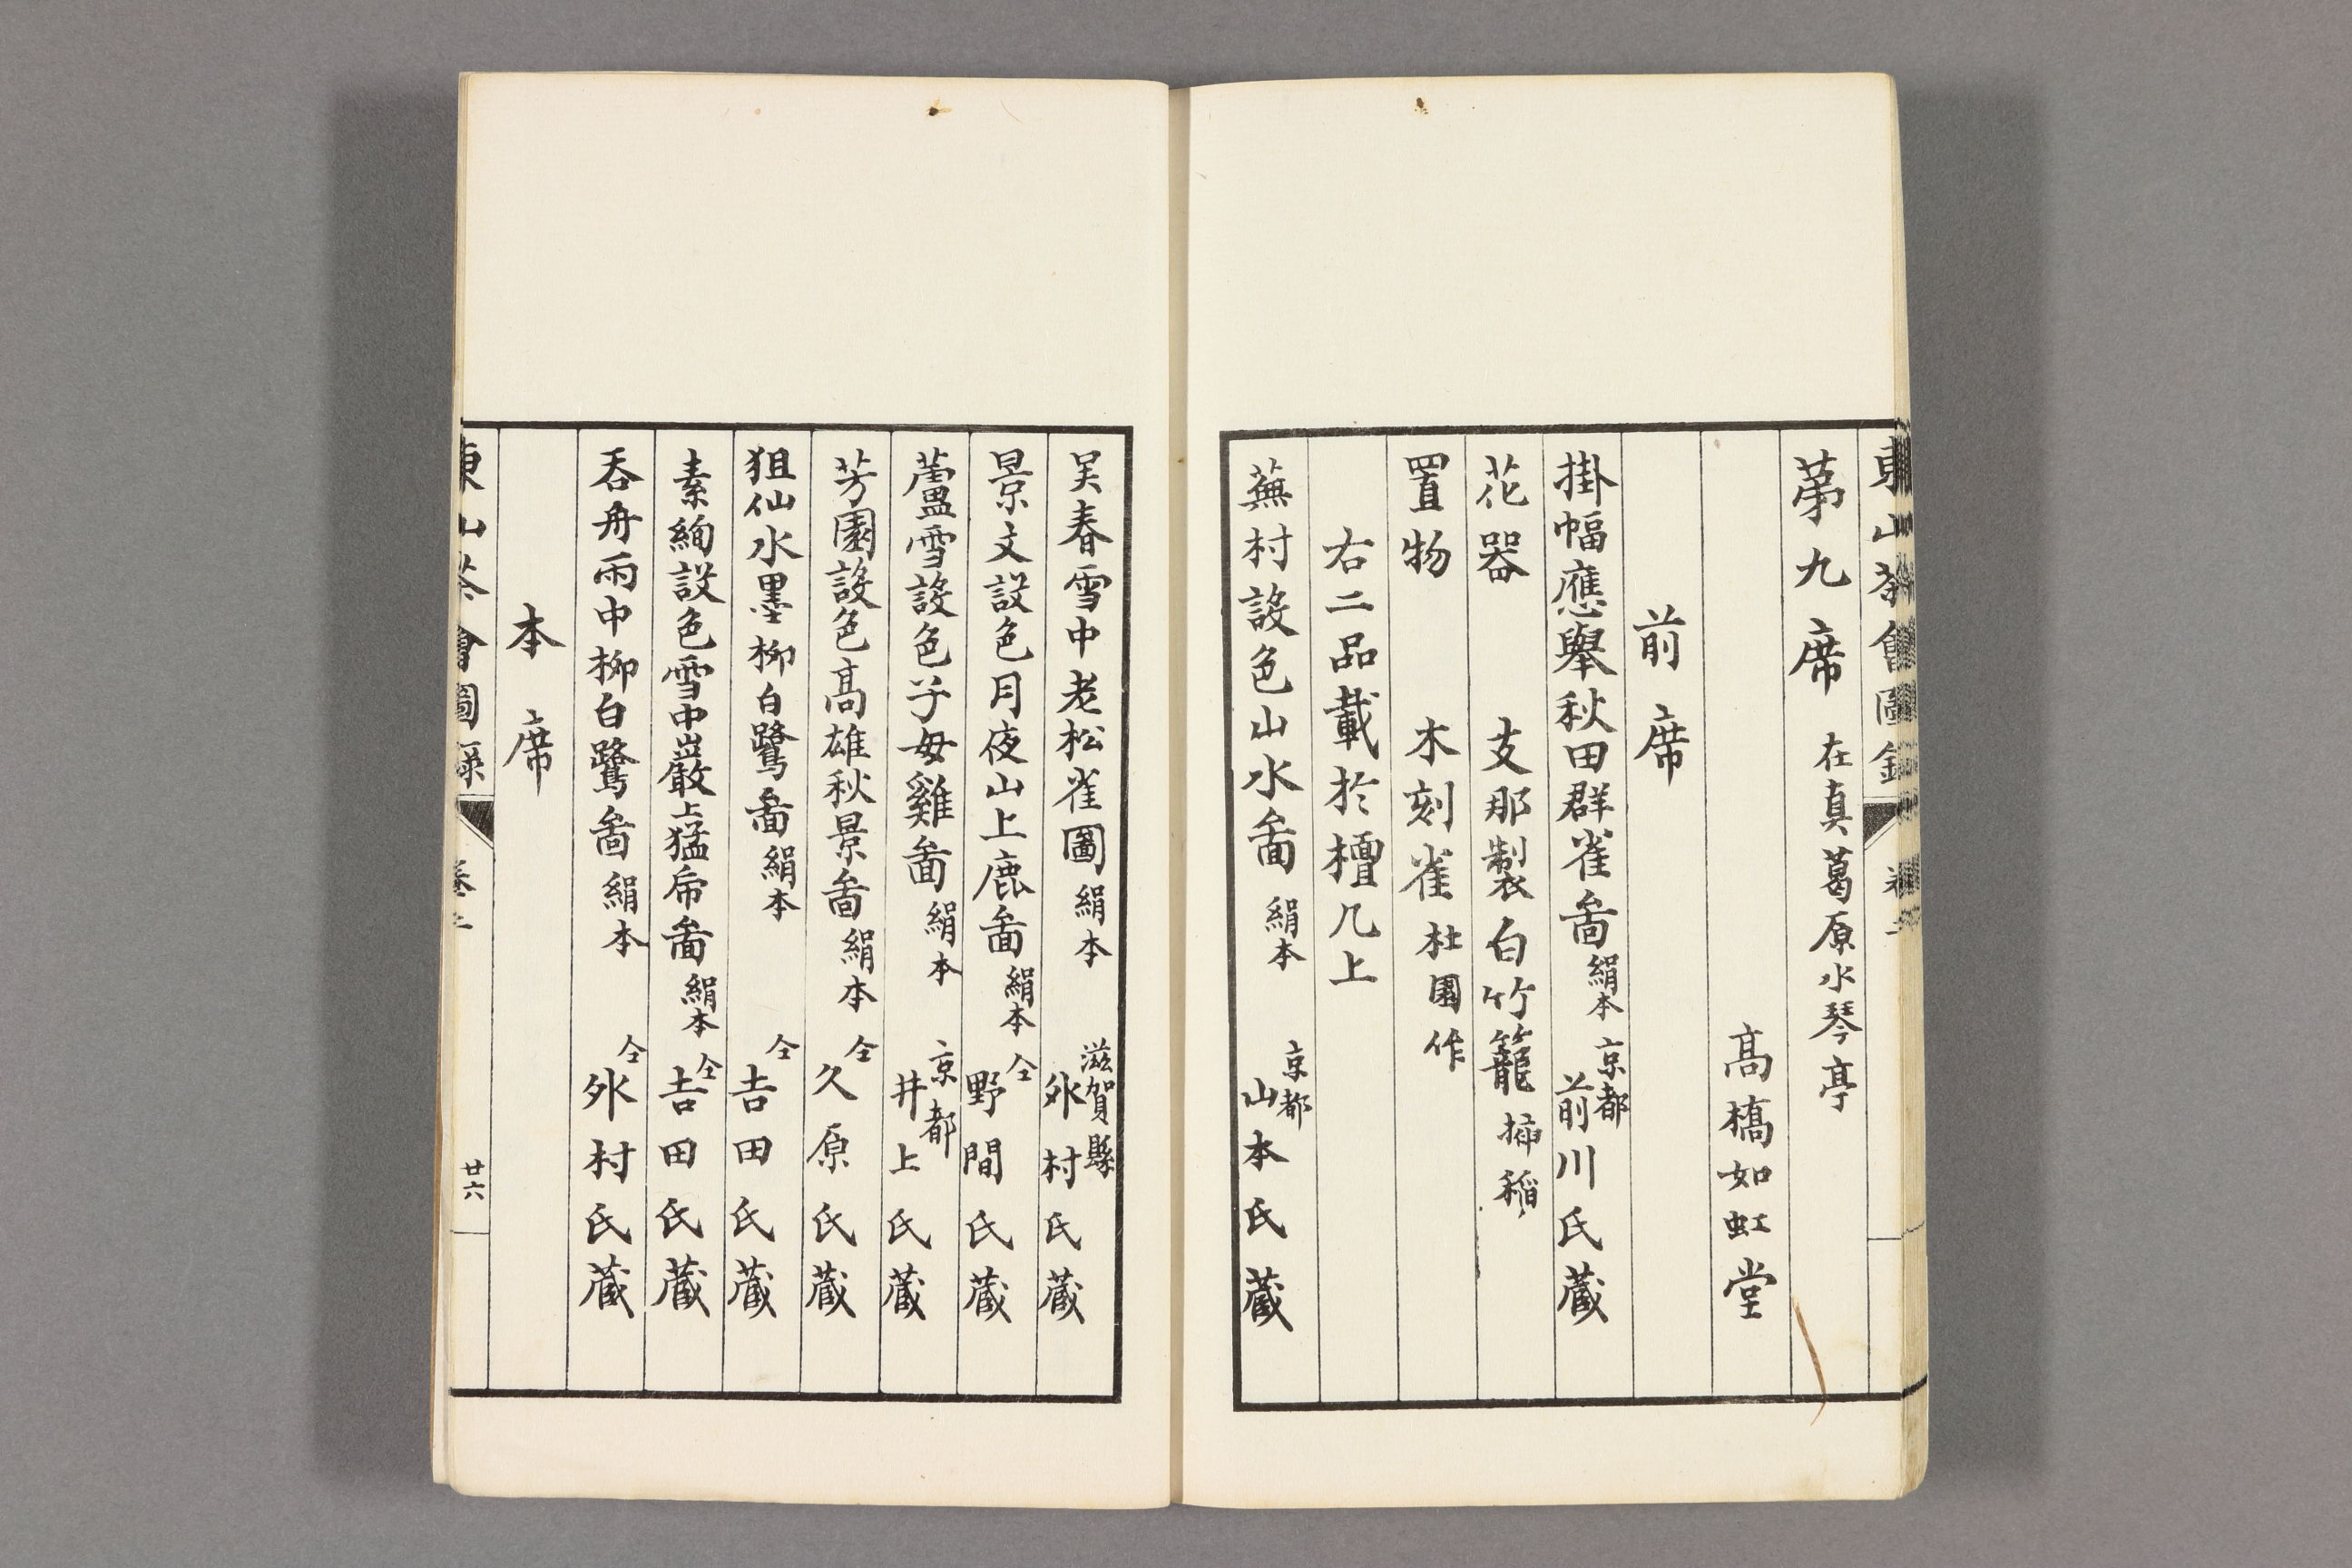 東山茶會圖録
第九席 在真葛原水琴亭
高橋如虹堂
前席
掛幅應擧秋田群雀啚 絹本 京都 前川氏蔵
花器 支那製白竹籠 挿稲
置物 木刻雀 杜園作
右二品載於檀几上
蕪村設色山水啚 絹本 京都 山本氏蔵
吴春雪中老松雀圖 絹本 滋賀縣 外村氏蔵
景文設色月夜山上鹿啚 絹本 仝 野間氏蔵
蘆雪設色子母雞啚 絹本 京都 井上氏蔵
芳園設色高雄秋景啚 絹本 仝 久原氏蔵
狙仙水墨柳白鷺啚 絹本 仝 吉田氏蔵
素絢設色雪中巖上猛乕啚 絹本 仝 吉田氏蔵
呑舟雨中柳白鷺啚 絹本 仝 外村氏蔵
本席
東山茶會圖録 廿六